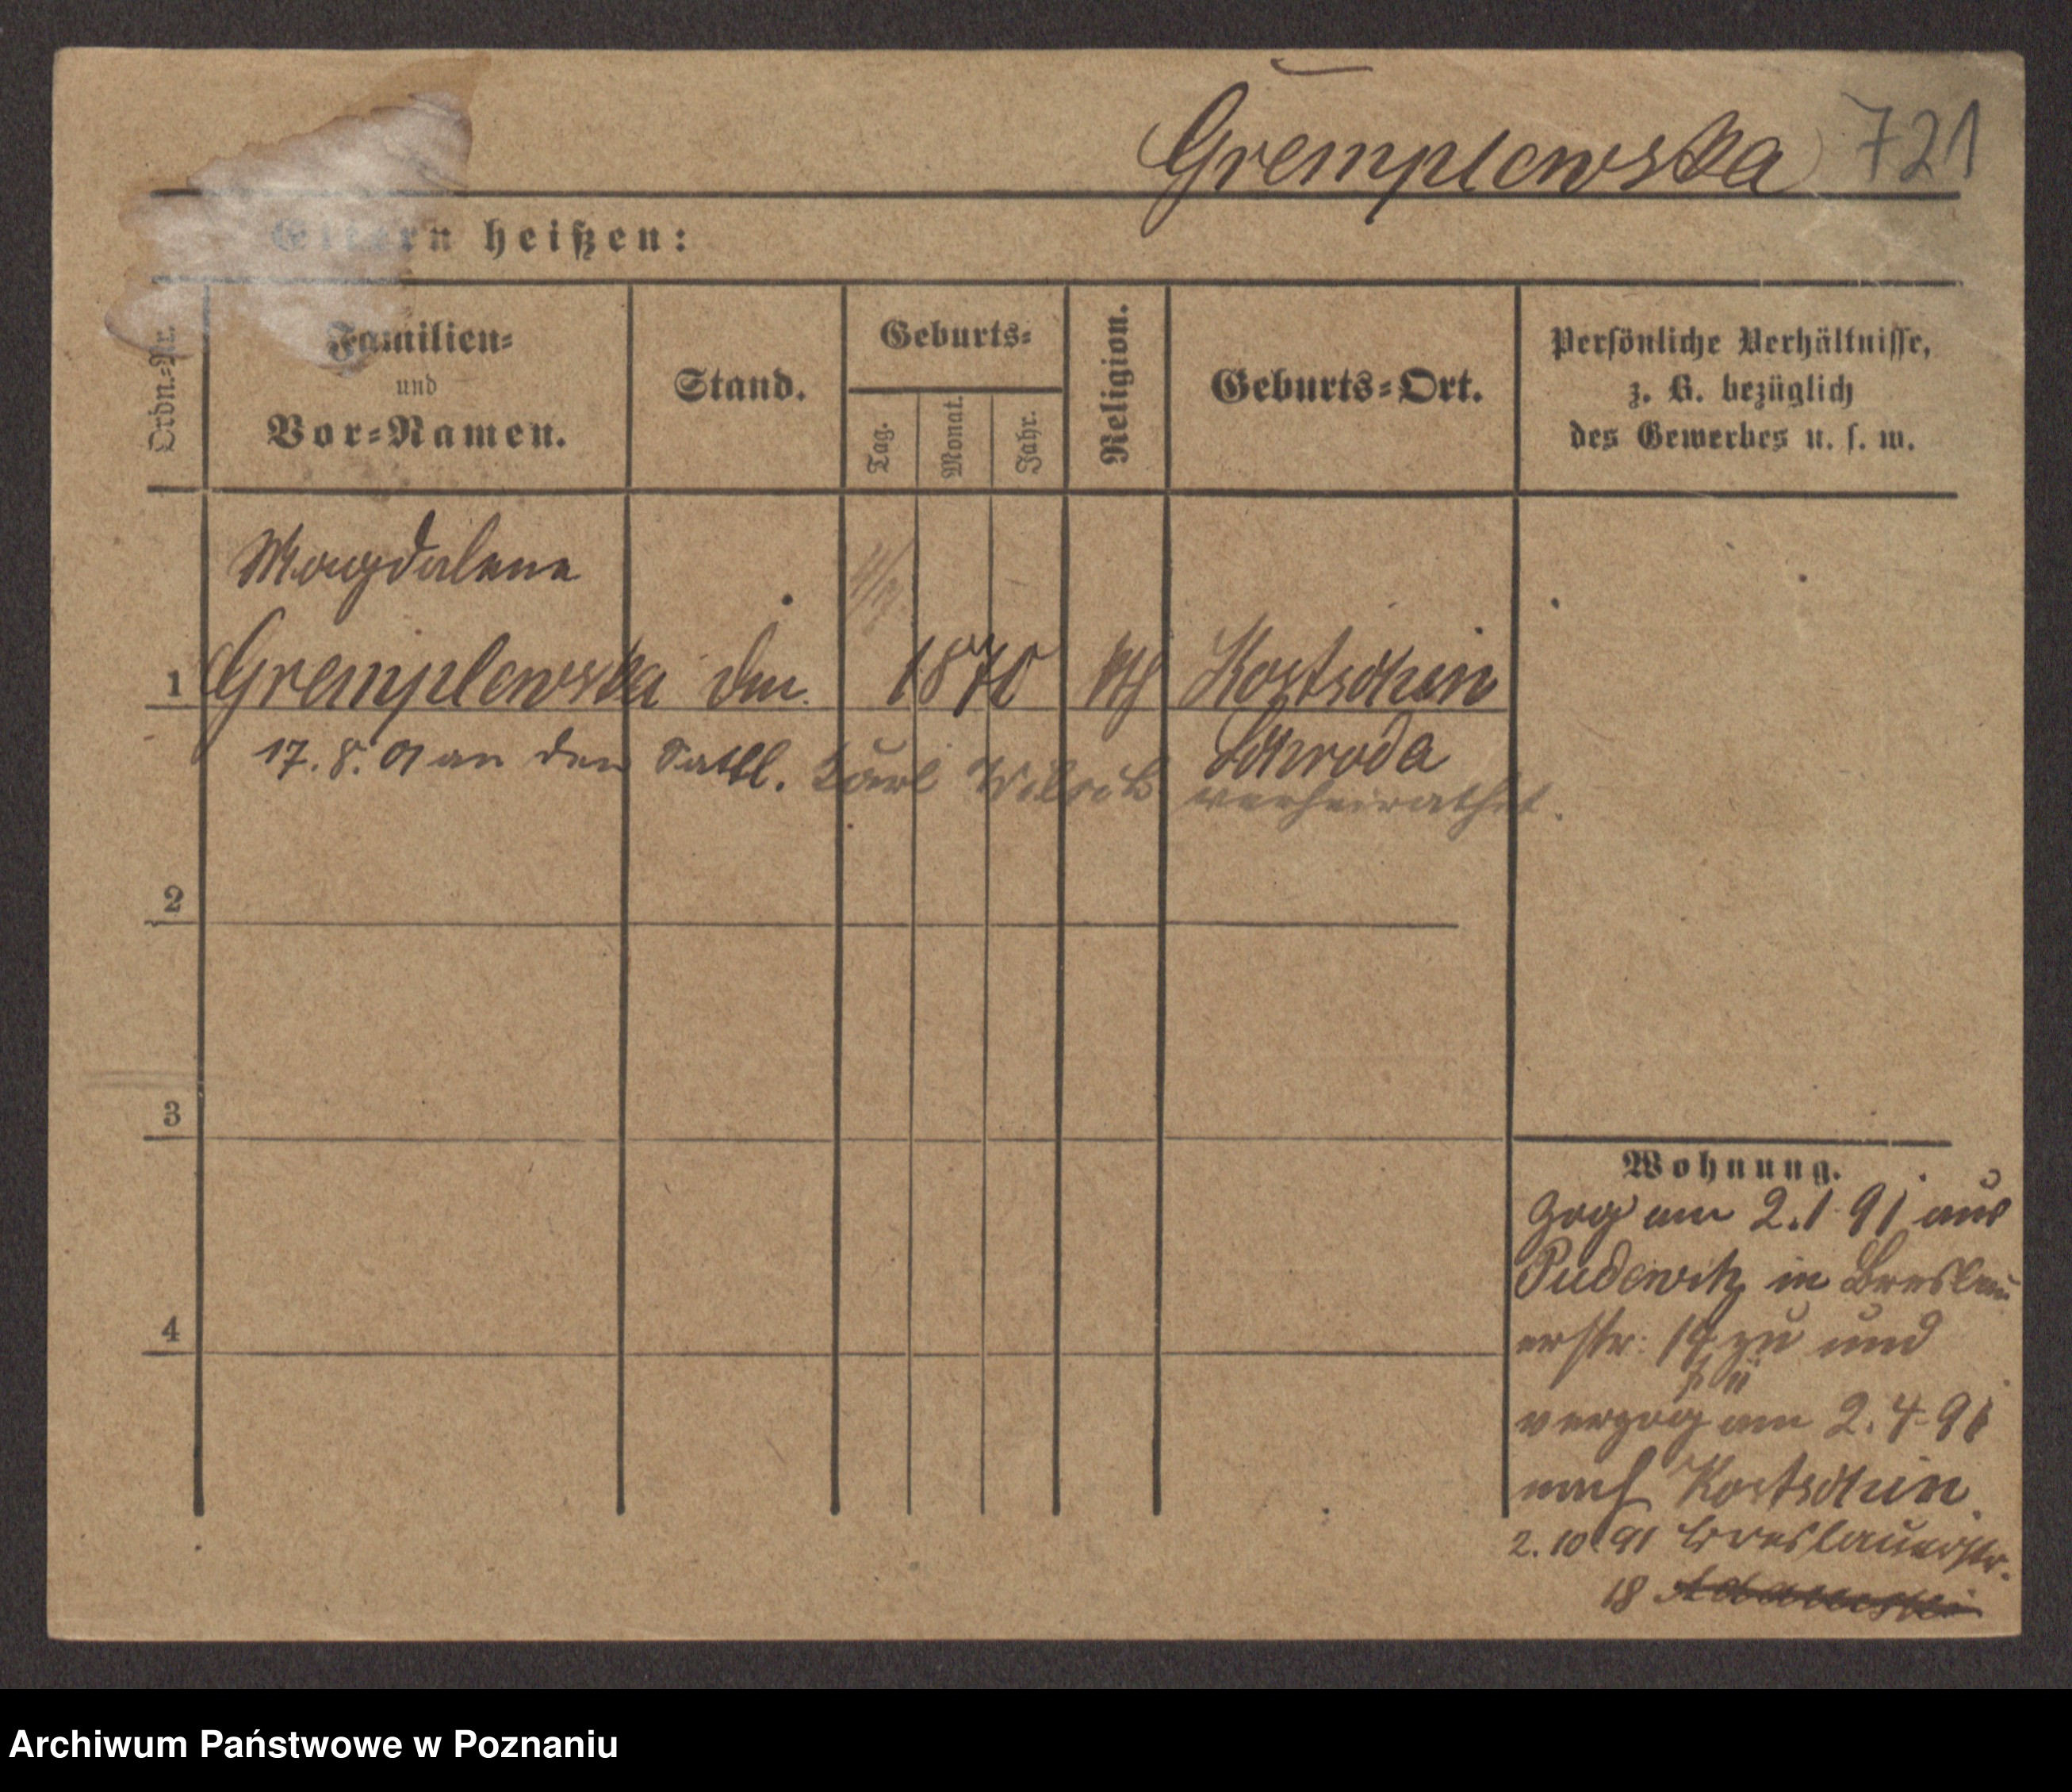 Gremplewska 721
Eltern heißen:
Ordn.-Nr.
Familien-
und
Vor-Namen.
Stand.
Geburts-
Tag.
Monat.
Jahr.
Religion.
Geburts-Ort.
Persönliche Verhältnisse,
z. B. bezüglich
des Gewerbes u. s. w.
Magdalene
1 Gremplewska 1870 kth Kostschin
Schroda
17.8.01 an den Sattl. Karl verheirathet.
2
3
4
Wohnung.
Zog am 2.1 91 aus
Pudewitz in Breslau
erstr: zu und
verzog am 2.4.91
nach Kostschin
2.10.91 Breslauerstr.
18
Archiwum Państwowe w Poznaniu